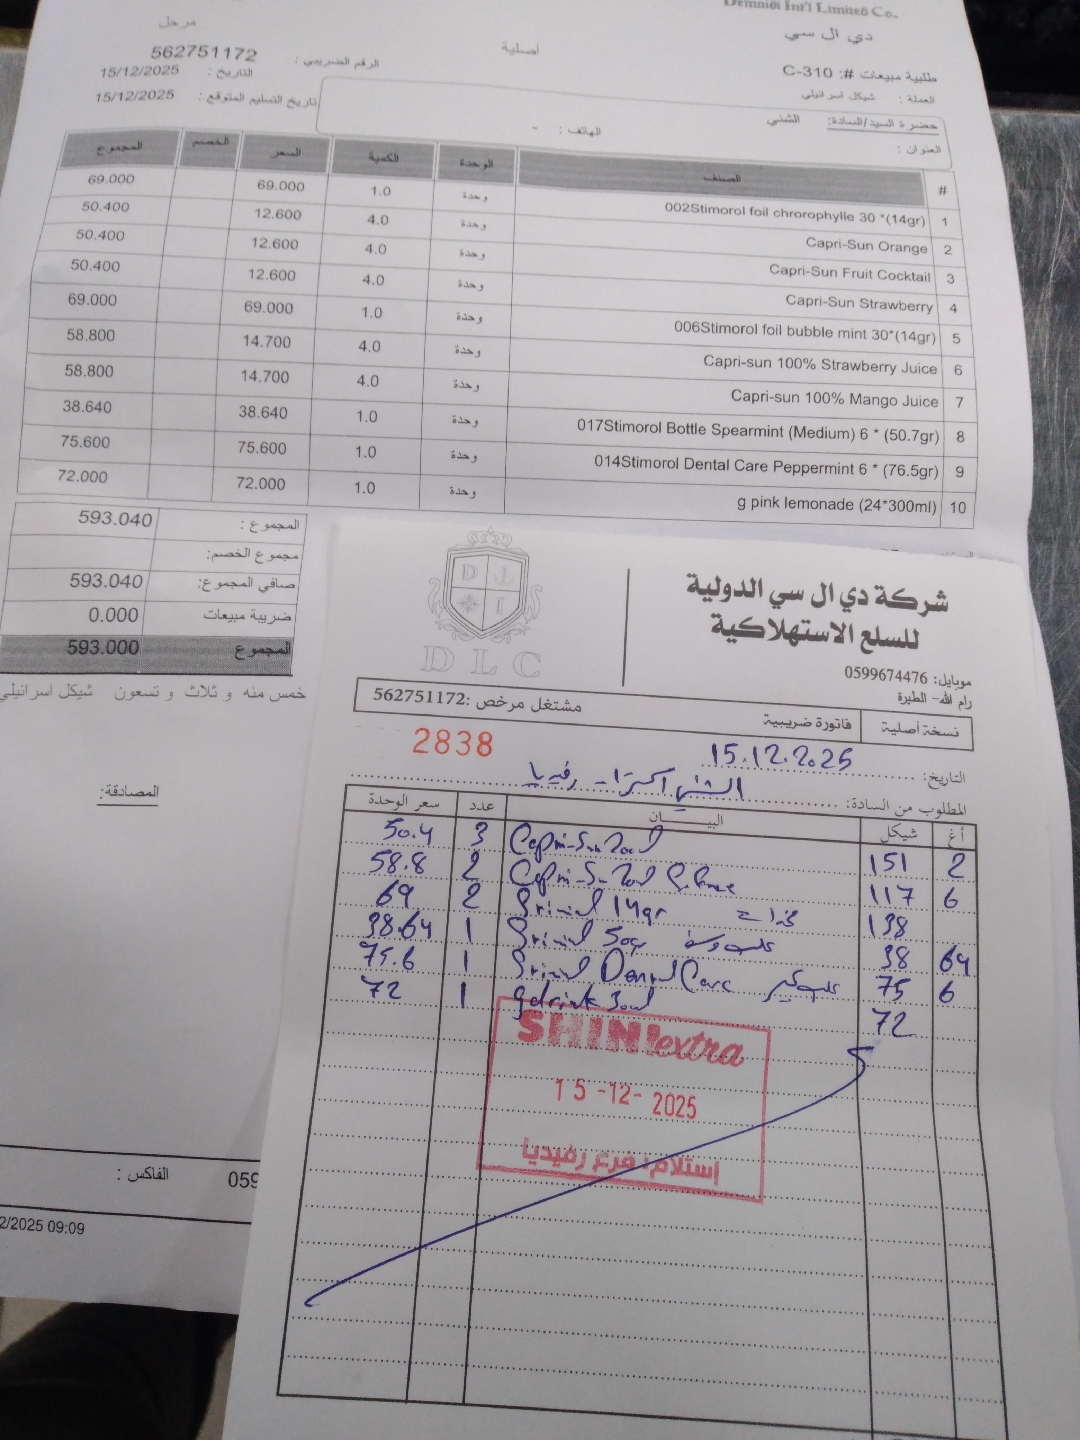 Int'l Limited Co.
دي ال سي
مرحل
أصلية
طلبية مبيعات #: C-310
الرقم الضريبي : 562751172
العملة : شيكل اسرائيلي
التاريخ : 15/12/2025
تاريخ التسليم المتوقع : 15/12/2025
حضرة السيد/السادة: الشني
العنوان :
الهاتف : -
# الصنف الوحدة الكمية السعر الخصم المجموع
1 002Stimorol foil chrorophylle 30 *(14gr) وحدة 1.0 69.000 69.000
2 Capri-Sun Orange وحدة 4.0 12.600 50.400
3 Capri-Sun Fruit Cocktail وحدة 4.0 12.600 50.400
4 Capri-Sun Strawberry وحدة 4.0 12.600 50.400
5 006Stimorol foil bubble mint 30*(14gr) وحدة 1.0 69.000 69.000
6 Capri-sun 100% Strawberry Juice وحدة 4.0 14.700 58.800
7 Capri-sun 100% Mango Juice وحدة 4.0 14.700 58.800
8 017Stimorol Bottle Spearmint (Medium) 6 * (50.7gr) وحدة 1.0 38.640 38.640
9 014Stimorol Dental Care Peppermint 6 * (76.5gr) وحدة 1.0 75.600 75.600
10 g pink lemonade (24*300ml) وحدة 1.0 72.000 72.000
المجموع : 593.040
مجموع الخصم:
صافي المجموع: 593.040
ضريبة مبيعات 0.000
المجموع 593.000
خمس منه و ثلاث و تسعون شيكل اسرائيلي
المصادقة:
الفاكس : 059
2/2025 09:09
D L C
شركة دي ال سي الدولية
للسلع الاستهلاكية
موبايل: 0599674476
رام الله- الطيرة
نسخة أصلية فاتورة ضريبية مشتغل مرخص :562751172
2838
التاريخ: 15.12.2025
المطلوب من السادة: الشني اكسترا - رفيديا
أغ شيكل البيـــــان عدد سعر الوحدة
2 151 Capri-Sun 3 50.4
6 117 2 58.8
138 14gr 2 69
64 38 50gr علب وسط 1 38.64
6 75 Dental Care علب كبير 1 75.6
72 1 72
SHINI extra
15 -12- 2025
إستلام: فرع رفيديا